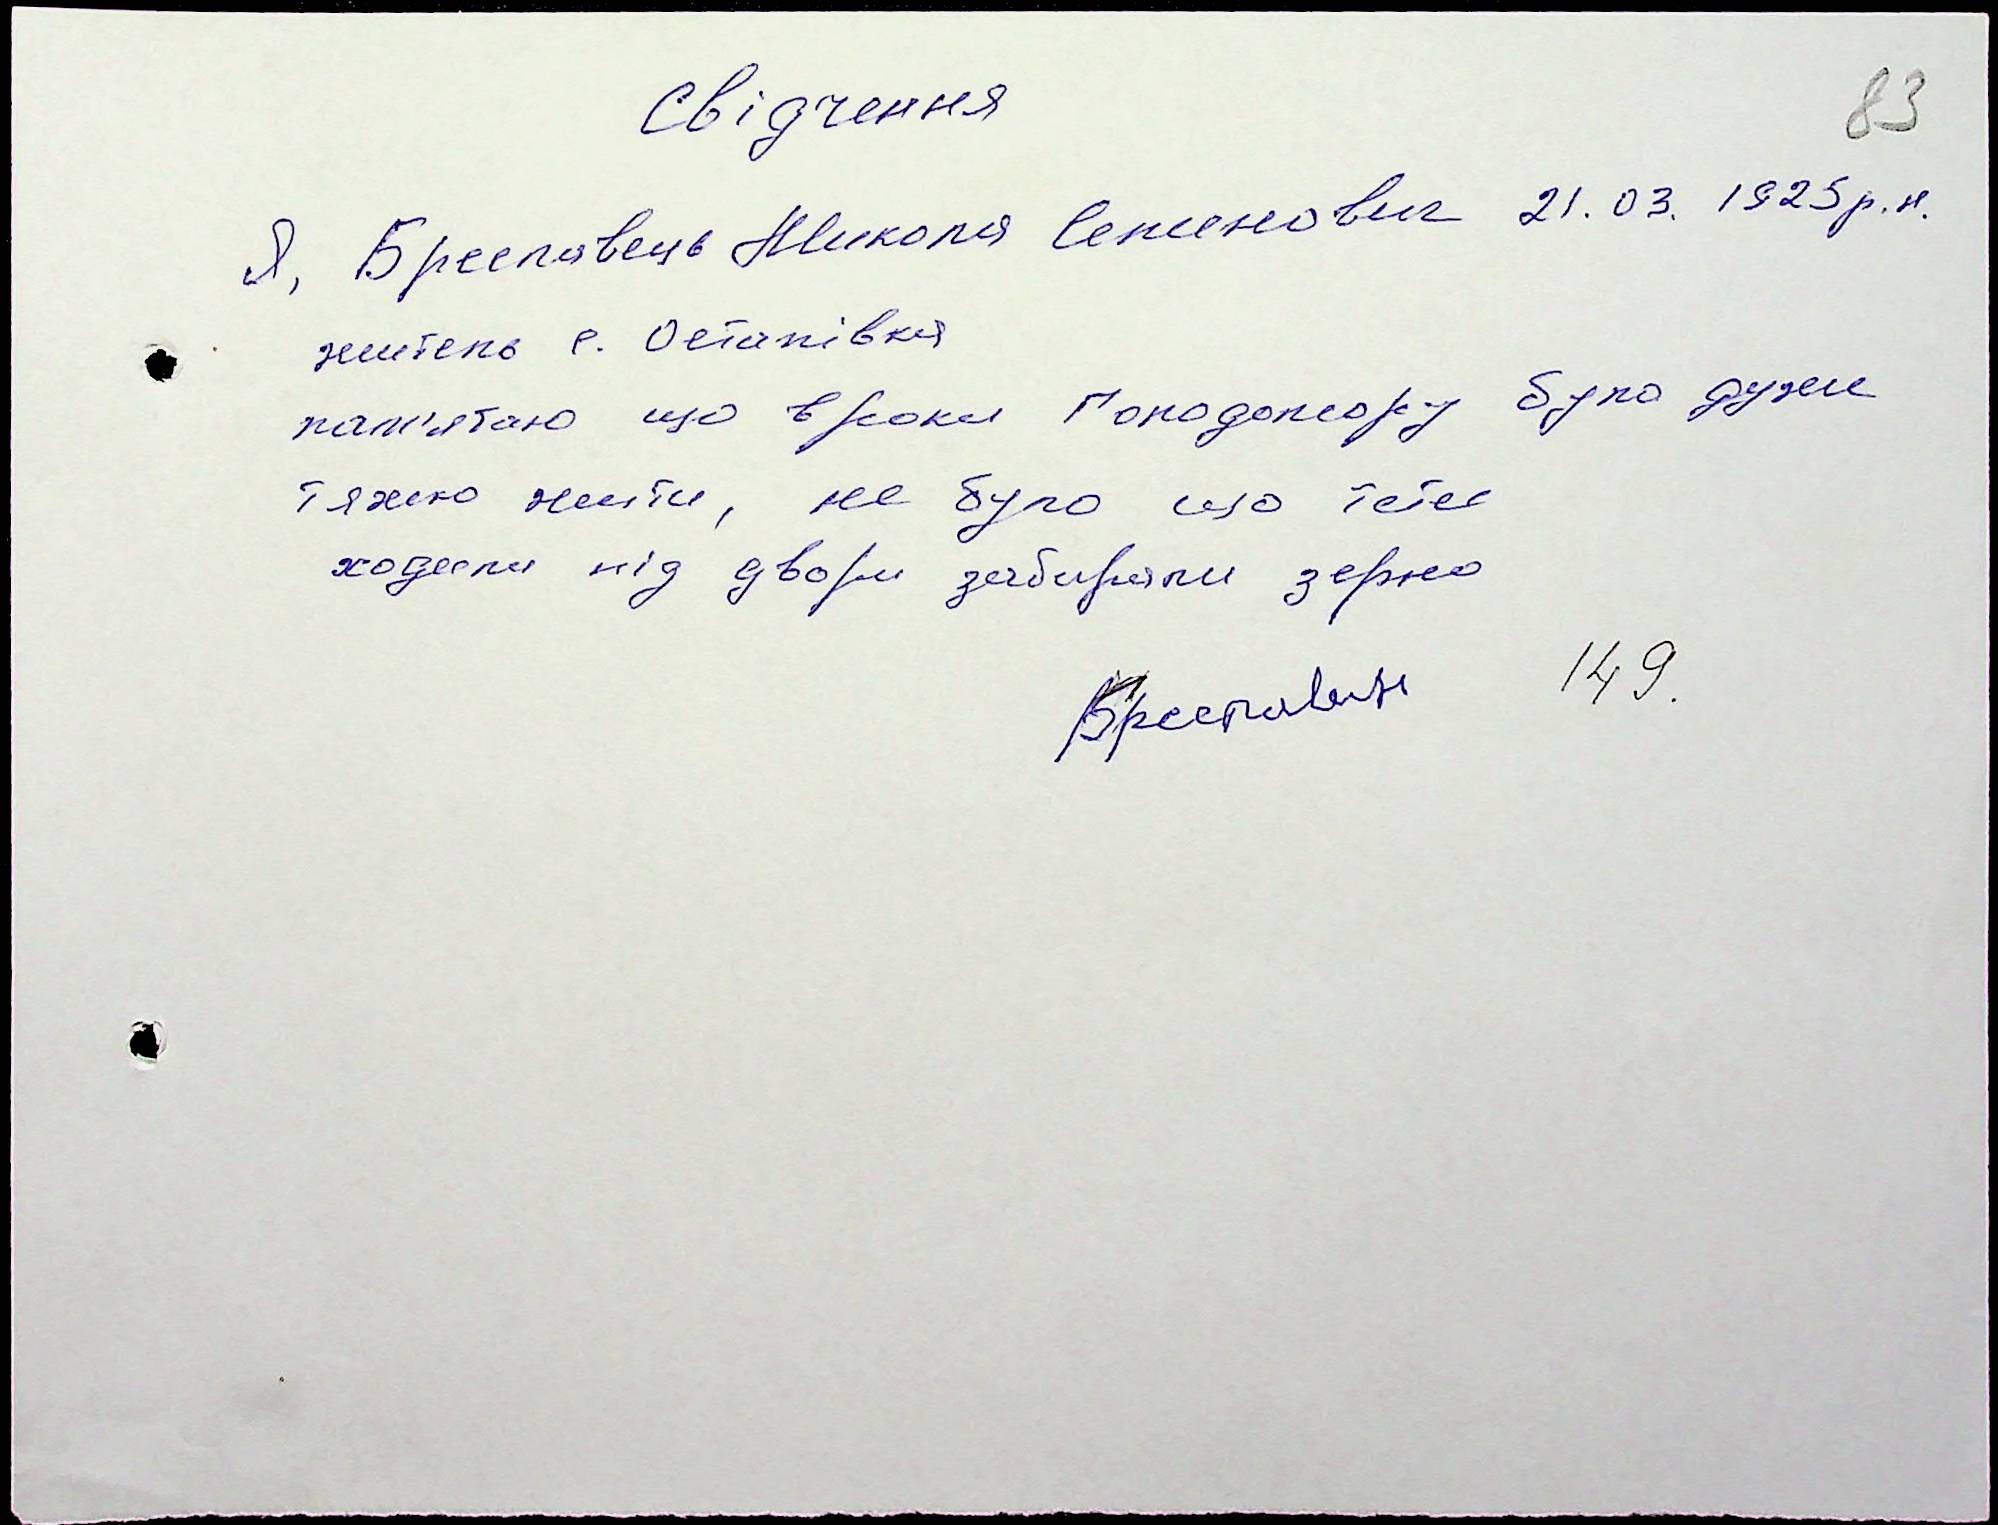 83
Свідчення
Я, Бреславець Микола Семенович 21.03.1925р.н.
житель с. Остапівка
пам'ятаю що в роки Голодомору було дуже
тяжко жити, не було що їсти
ходили під двори забирали зерно
Бреславець 149.